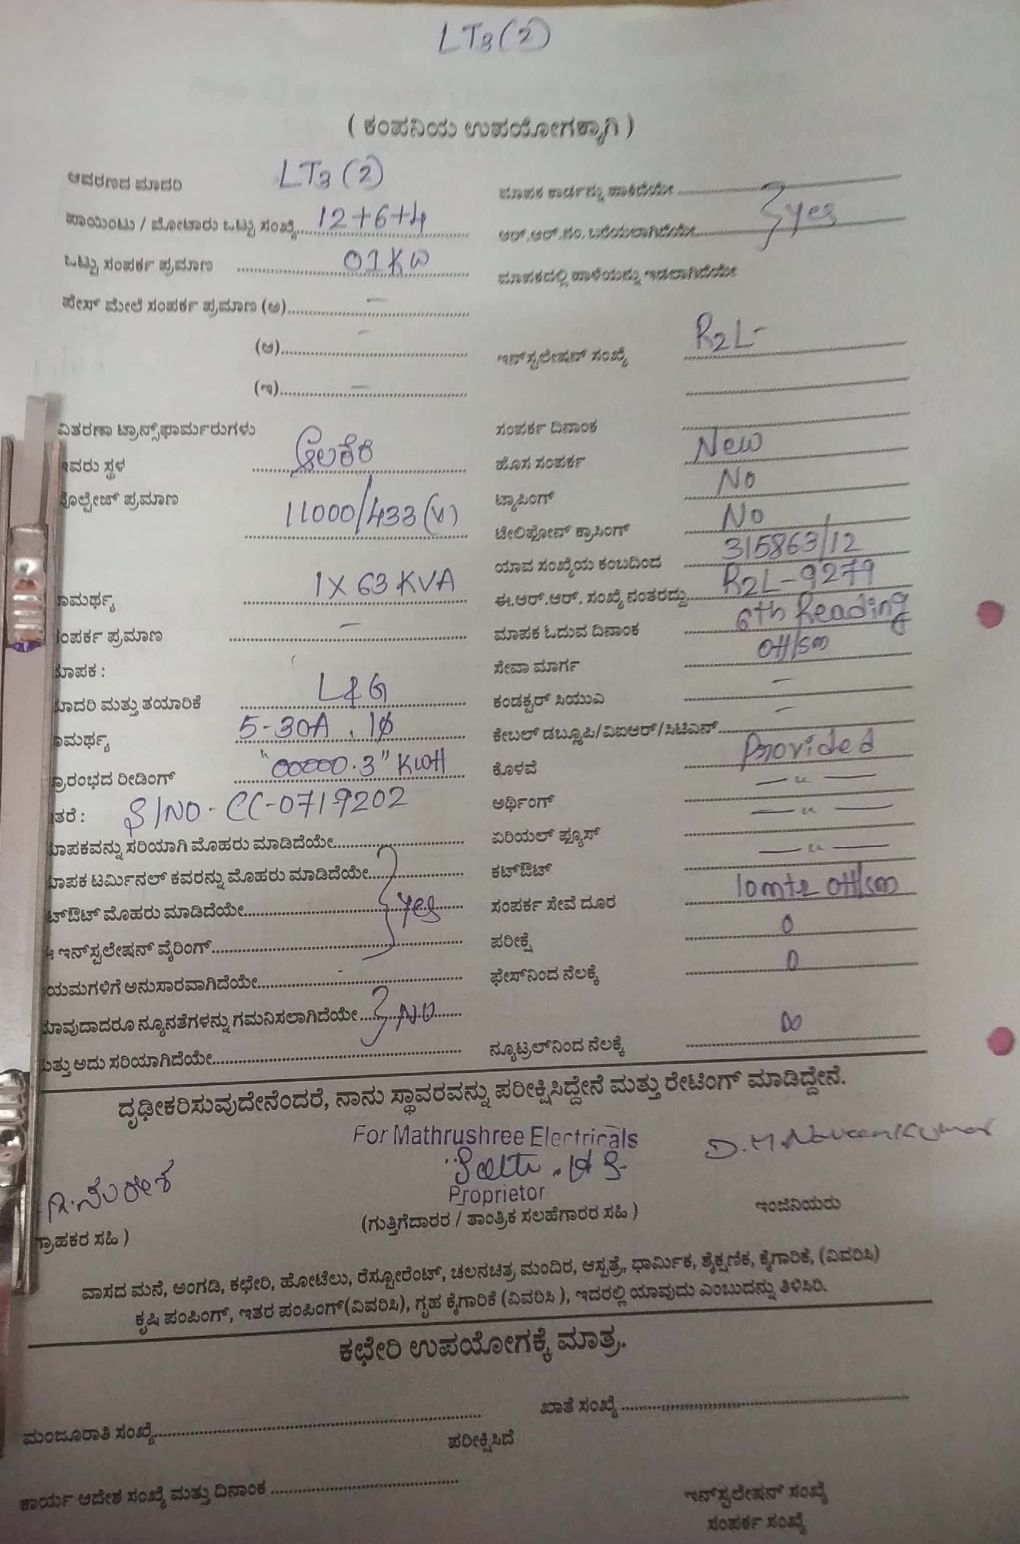 LT3(2)
( ಕಂಪನಿಯ ಉಪಯೋಗಕ್ಕಾಗಿ )
ಆವರಣದ ಮಾದರಿ LT3 (2)
ಮಾಪಕ ಕಾರ್ಡನ್ನು ಹಾಕಿದೆಯೇ
ಪಾಯಿಂಟು / ಮೋಟಾರು ಒಟ್ಟು ಸಂಖ್ಯೆ 12+6+4
ಆರ್.ಆರ್.ನಂ. ಬರೆಯಲಾಗಿದೆಯೇ yes
ಒಟ್ಟು ಸಂಪರ್ಕ ಪ್ರಮಾಣ 01KW
ಮಾಪಕದಲ್ಲಿ ಹಾಳೆಯನ್ನು ಇಡಲಾಗಿದೆಯೇ
ಫೇಸ್ ಮೇಲೆ ಸಂಪರ್ಕ ಪ್ರಮಾಣ (ಅ) –
(ಆ) –
ಇನ್‌ಸ್ಟಲೇಷನ್ ಸಂಖ್ಯೆ R2L-
(ಇ) –
ವಿತರಣಾ ಟ್ರಾನ್ಸ್‌ಫಾರ್ಮರುಗಳು
ಸಂಪರ್ಕ ದಿನಾಂಕ
ಇವರು ಸ್ಥಳ
ಹೊಸ ಸಂಪರ್ಕ New
ವೋಲ್ಟೇಜ್ ಪ್ರಮಾಣ 11000/433 (V)
ಟ್ಯಾಪಿಂಗ್ No
ಟೇಲಿಫೋನ್ ಕ್ರಾಸಿಂಗ್ No
ಯಾವ ಸಂಖ್ಯೆಯ ಕಂಬದಿಂದ 315863/12
ಸಾಮರ್ಥ್ಯ 1X 63 KVA
ಈ.ಆರ್.ಆರ್. ಸಂಖ್ಯೆ ನಂತರದ್ದು R2L-9279
ಸಂಪರ್ಕ ಪ್ರಮಾಣ –
ಮಾಪಕ ಓದುವ ದಿನಾಂಕ 6th Reading
ಮಾಪಕ :
ಸೇವಾ ಮಾರ್ಗ OH/sm
ಮಾದರಿ ಮತ್ತು ತಯಾರಿಕೆ L&G
ಕಂಡಕ್ಟರ್ ಸಿಯುಎ –
ಸಾಮರ್ಥ್ಯ 5-30A, 1ϕ
ಕೇಬಲ್ ಡಬ್ಲೂಪಿ/ವಿಐಆರ್/ಸಿಟಿಎಸ್ –
ಪ್ರಾರಂಭದ ರೀಡಿಂಗ್ "00000.3" KWH
ಕೊಳವೆ Provided
ಇತರೆ : S/NO- CC-0719202
ಅರ್ಥಿಂಗ್ — " —
ಮಾಪಕವನ್ನು ಸರಿಯಾಗಿ ಮೊಹರು ಮಾಡಿದೆಯೇ
ಏರಿಯಲ್ ಫ್ಯೂಸ್ — " —
ಮಾಪಕ ಟರ್ಮಿನಲ್ ಕವರನ್ನು ಮೊಹರು ಮಾಡಿದೆಯೇ
ಕಟ್‌ಔಟ್ — " —
ಕಟ್‌ಔಟ್ ಮೊಹರು ಮಾಡಿದೆಯೇ yes
ಸಂಪರ್ಕ ಸೇವೆ ದೂರ 10mtr OH/sm
ಈ ಇನ್‌ಸ್ಟಲೇಷನ್ ವೈರಿಂಗ್
ಪರೀಕ್ಷೆ 0
ನಿಯಮಗಳಿಗೆ ಅನುಸಾರವಾಗಿದೆಯೇ
ಫೇಸ್‌ನಿಂದ ನೆಲಕ್ಕೆ 0
ಯಾವುದಾದರೂ ನ್ಯೂನತೆಗಳನ್ನು ಗಮನಿಸಲಾಗಿದೆಯೇ NO
ಮತ್ತು ಅದು ಸರಿಯಾಗಿದೆಯೇ
ನ್ಯೂಟ್ರಲ್‌ನಿಂದ ನೆಲಕ್ಕೆ ∞
ದೃಢೀಕರಿಸುವುದೇನೆಂದರೆ, ನಾನು ಸ್ಥಾವರವನ್ನು ಪರೀಕ್ಷಿಸಿದ್ದೇನೆ ಮತ್ತು ರೇಟಿಂಗ್ ಮಾಡಿದ್ದೇನೆ.
For Mathrushree Electricals
D.M. Naveenkumar
Proprietor
ಗ್ರಾಹಕರ ಸಹಿ )
(ಗುತ್ತಿಗೆದಾರರ / ತಾಂತ್ರಿಕ ಸಲಹೆಗಾರರ ಸಹಿ )
ಇಂಜಿನಿಯರು
ವಾಸದ ಮನೆ, ಅಂಗಡಿ, ಕಛೇರಿ, ಹೋಟೆಲು, ರೆಸ್ಟೋರೆಂಟ್, ಚಲನಚಿತ್ರ ಮಂದಿರ, ಆಸ್ಪತ್ರೆ, ಧಾರ್ಮಿಕ, ಶೈಕ್ಷಣಿಕ, ಕೈಗಾರಿಕೆ, (ವಿವರಿಸಿ)
ಕೃಷಿ ಪಂಪಿಂಗ್, ಇತರ ಪಂಪಿಂಗ್(ವಿವರಿಸಿ), ಗೃಹ ಕೈಗಾರಿಕೆ (ವಿವರಿಸಿ ), ಇದರಲ್ಲಿ ಯಾವುದು ಎಂಬುದನ್ನು ತಿಳಿಸಿರಿ.
ಕಛೇರಿ ಉಪಯೋಗಕ್ಕೆ ಮಾತ್ರ.
ಮಂಜೂರಾತಿ ಸಂಖ್ಯೆ
ಖಾತೆ ಸಂಖ್ಯೆ
ಪರೀಕ್ಷಿಸಿದೆ
ಕಾರ್ಯ ಆದೇಶ ಸಂಖ್ಯೆ ಮತ್ತು ದಿನಾಂಕ
ಇನ್‌ಸ್ಟಲೇಷನ್ ಸಂಖ್ಯೆ
ಸಂಪರ್ಕ ಸಂಖ್ಯೆ